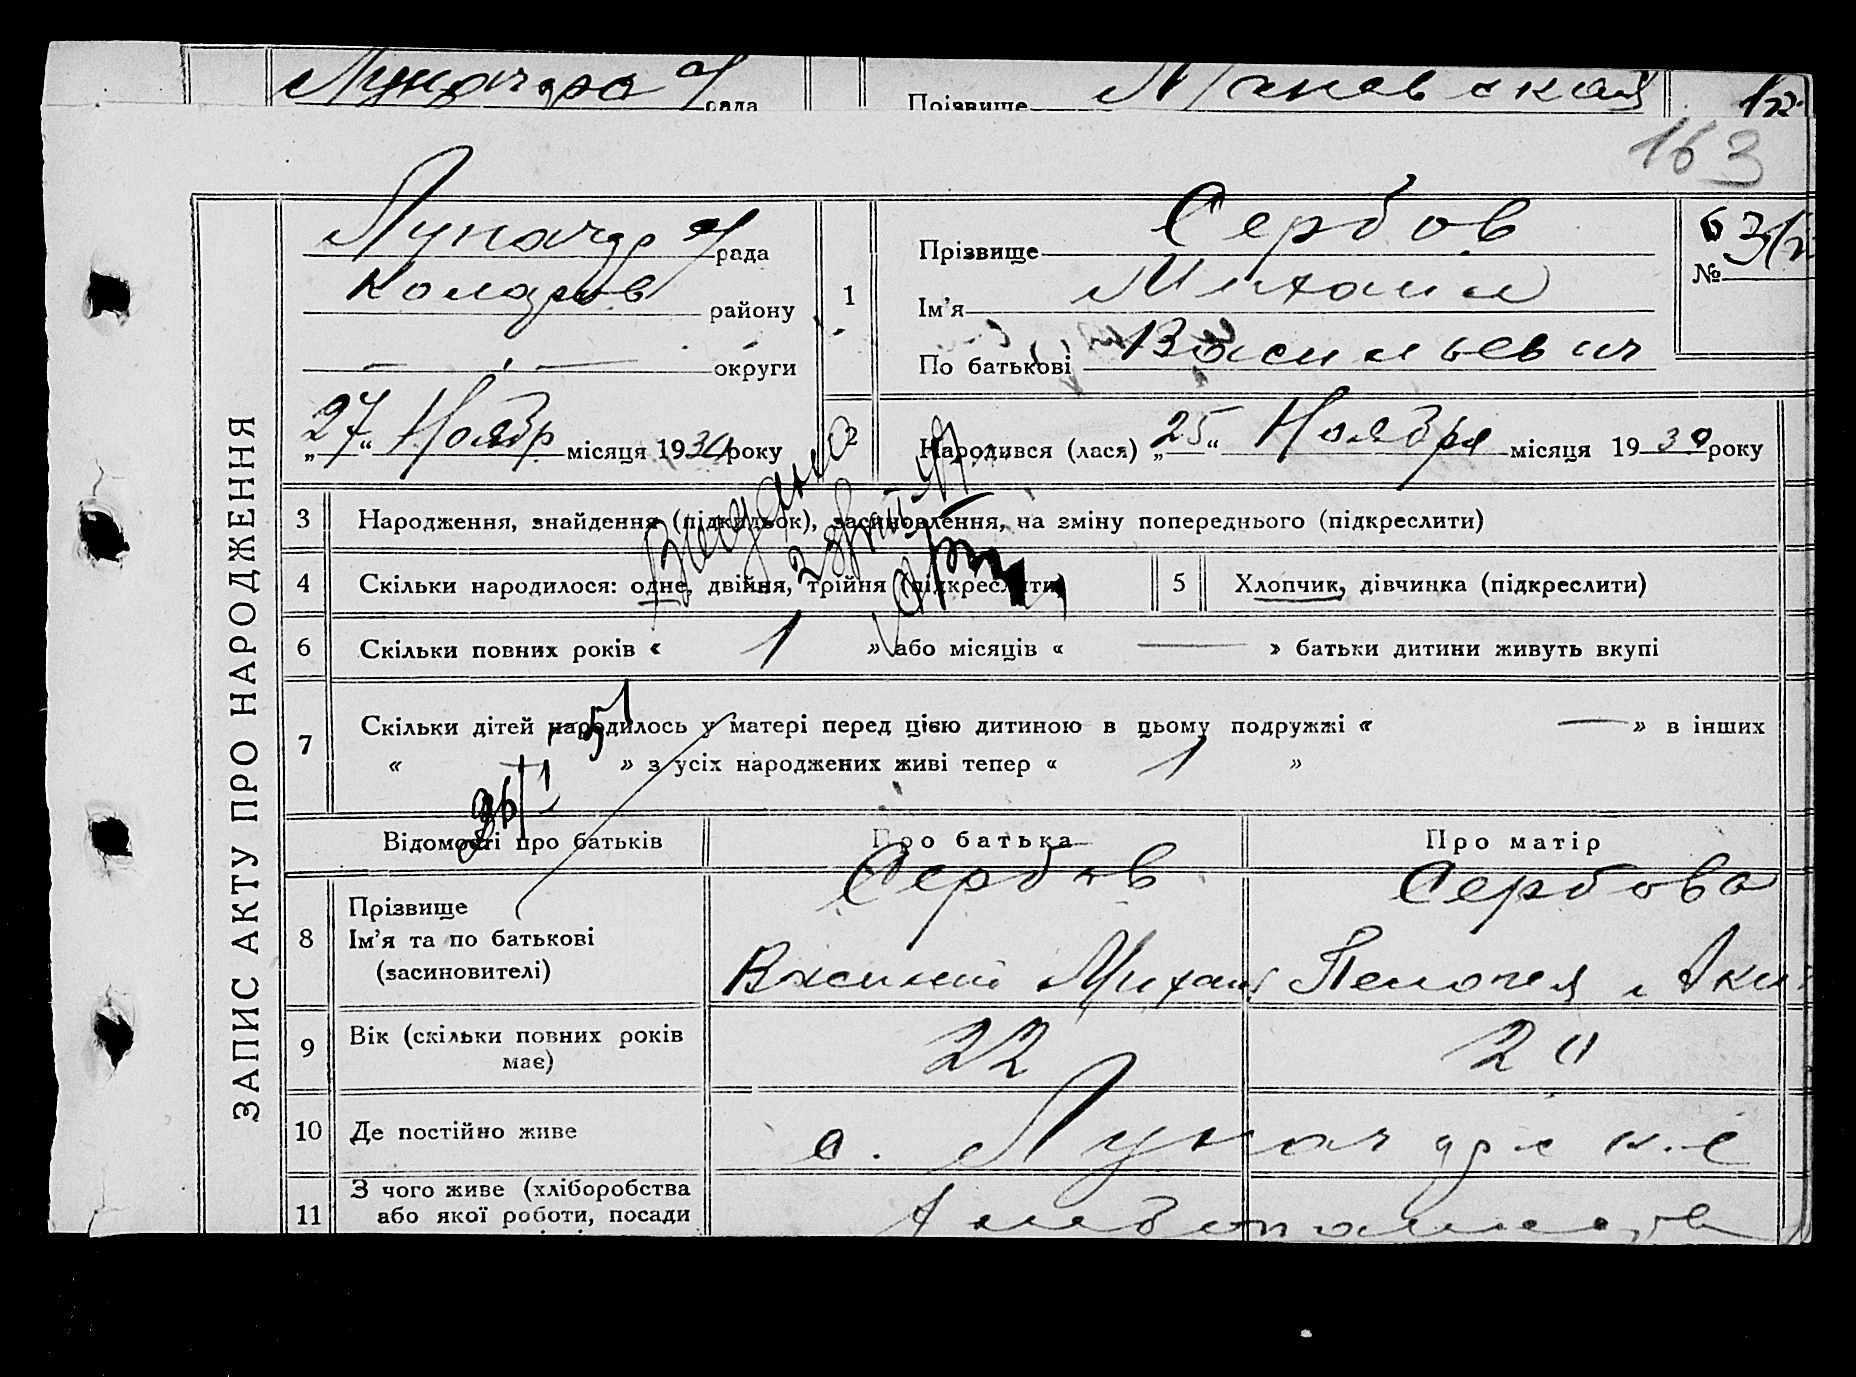 рада Прізвище
163
Сербов
Луначар рада Прізвище
Коларов району 1 Ім'я Михаил №
округи По батькові Васильевич
„27“ Ноябр місяця 1930 року 2 Народився (лася) „25“ Ноября місяця 1930 року
ЗАПИС АКТУ ПРО НАРОДЖЕННЯ
3 Народження, знайдення (підкидьок), засиновлення, на зміну попереднього (підкреслити)
4 Скільки народилося: одне, двійня, трійня (підкреслити) 5 Хлопчик, дівчинка (підкреслити)
6 Скільки повних років « 1 » або місяців « — » батьки дитини живуть вкупі
7 Скільки дітей народилось у матері перед цією дитиною в цьому подружжі « — » в інших
« » з усіх народжених живі тепер « 1 »
Відомості про батьків Про батька Про матір
Сербов Сербова
8 Прізвище
Ім'я та по батькові
(засиновителі) Василий Михаил Пелагея Аки
9 Вік (скільки повних років 22 20
має)
10 Де постійно живе с. Луначарское
11 З чого живе (хліборобства
або якої роботи, посади